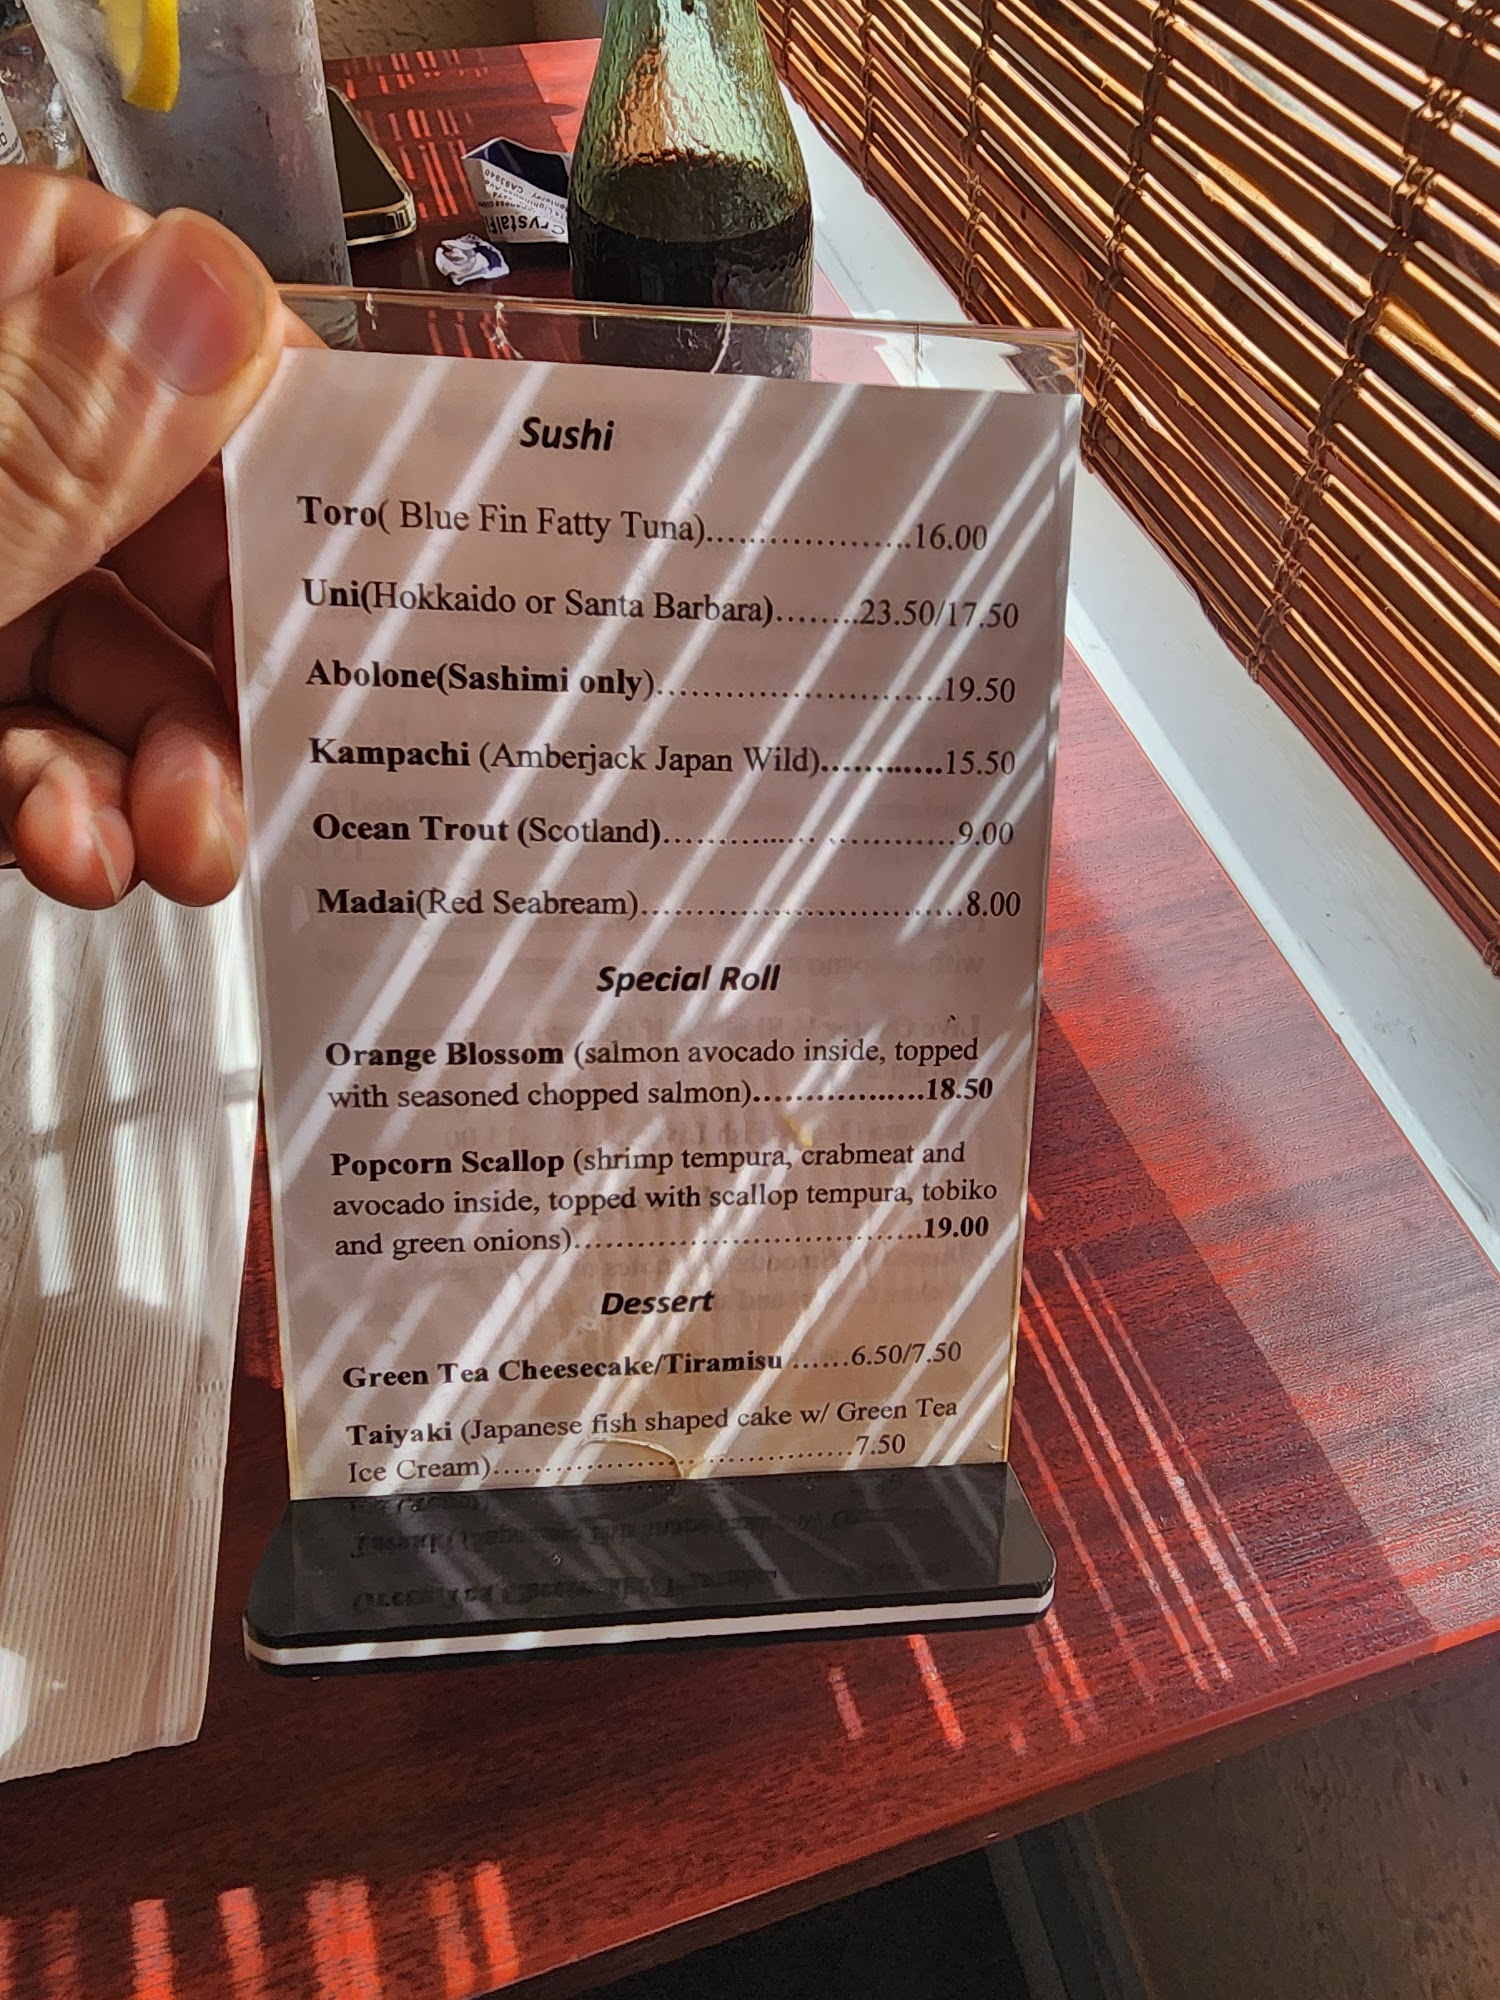 Sushi
Toro( Blue Fin Fatty Tuna)....................16.00
Uni(Hokkaido or Santa Barbara)........23.50/17.50
Abolone(Sashimi only)..........................19.50
Kampachi (Amberjack Japan Wild)............15.50
Ocean Trout (Scotland)............................9.00
Madai(Red Seabream)..............................8.00
Special Roll
Orange Blossom (salmon avocado inside, topped
with seasoned chopped salmon).................18.50
Popcorn Scallop (shrimp tempura, crabmeat and
avocado inside, topped with scallop tempura, tobiko
and green onions)...................................19.00
Dessert
Green Tea Cheesecake/Tiramisu ......6.50/7.50
Taiyaki (Japanese fish shaped cake w/ Green Tea
Ice Cream).....................................7.50